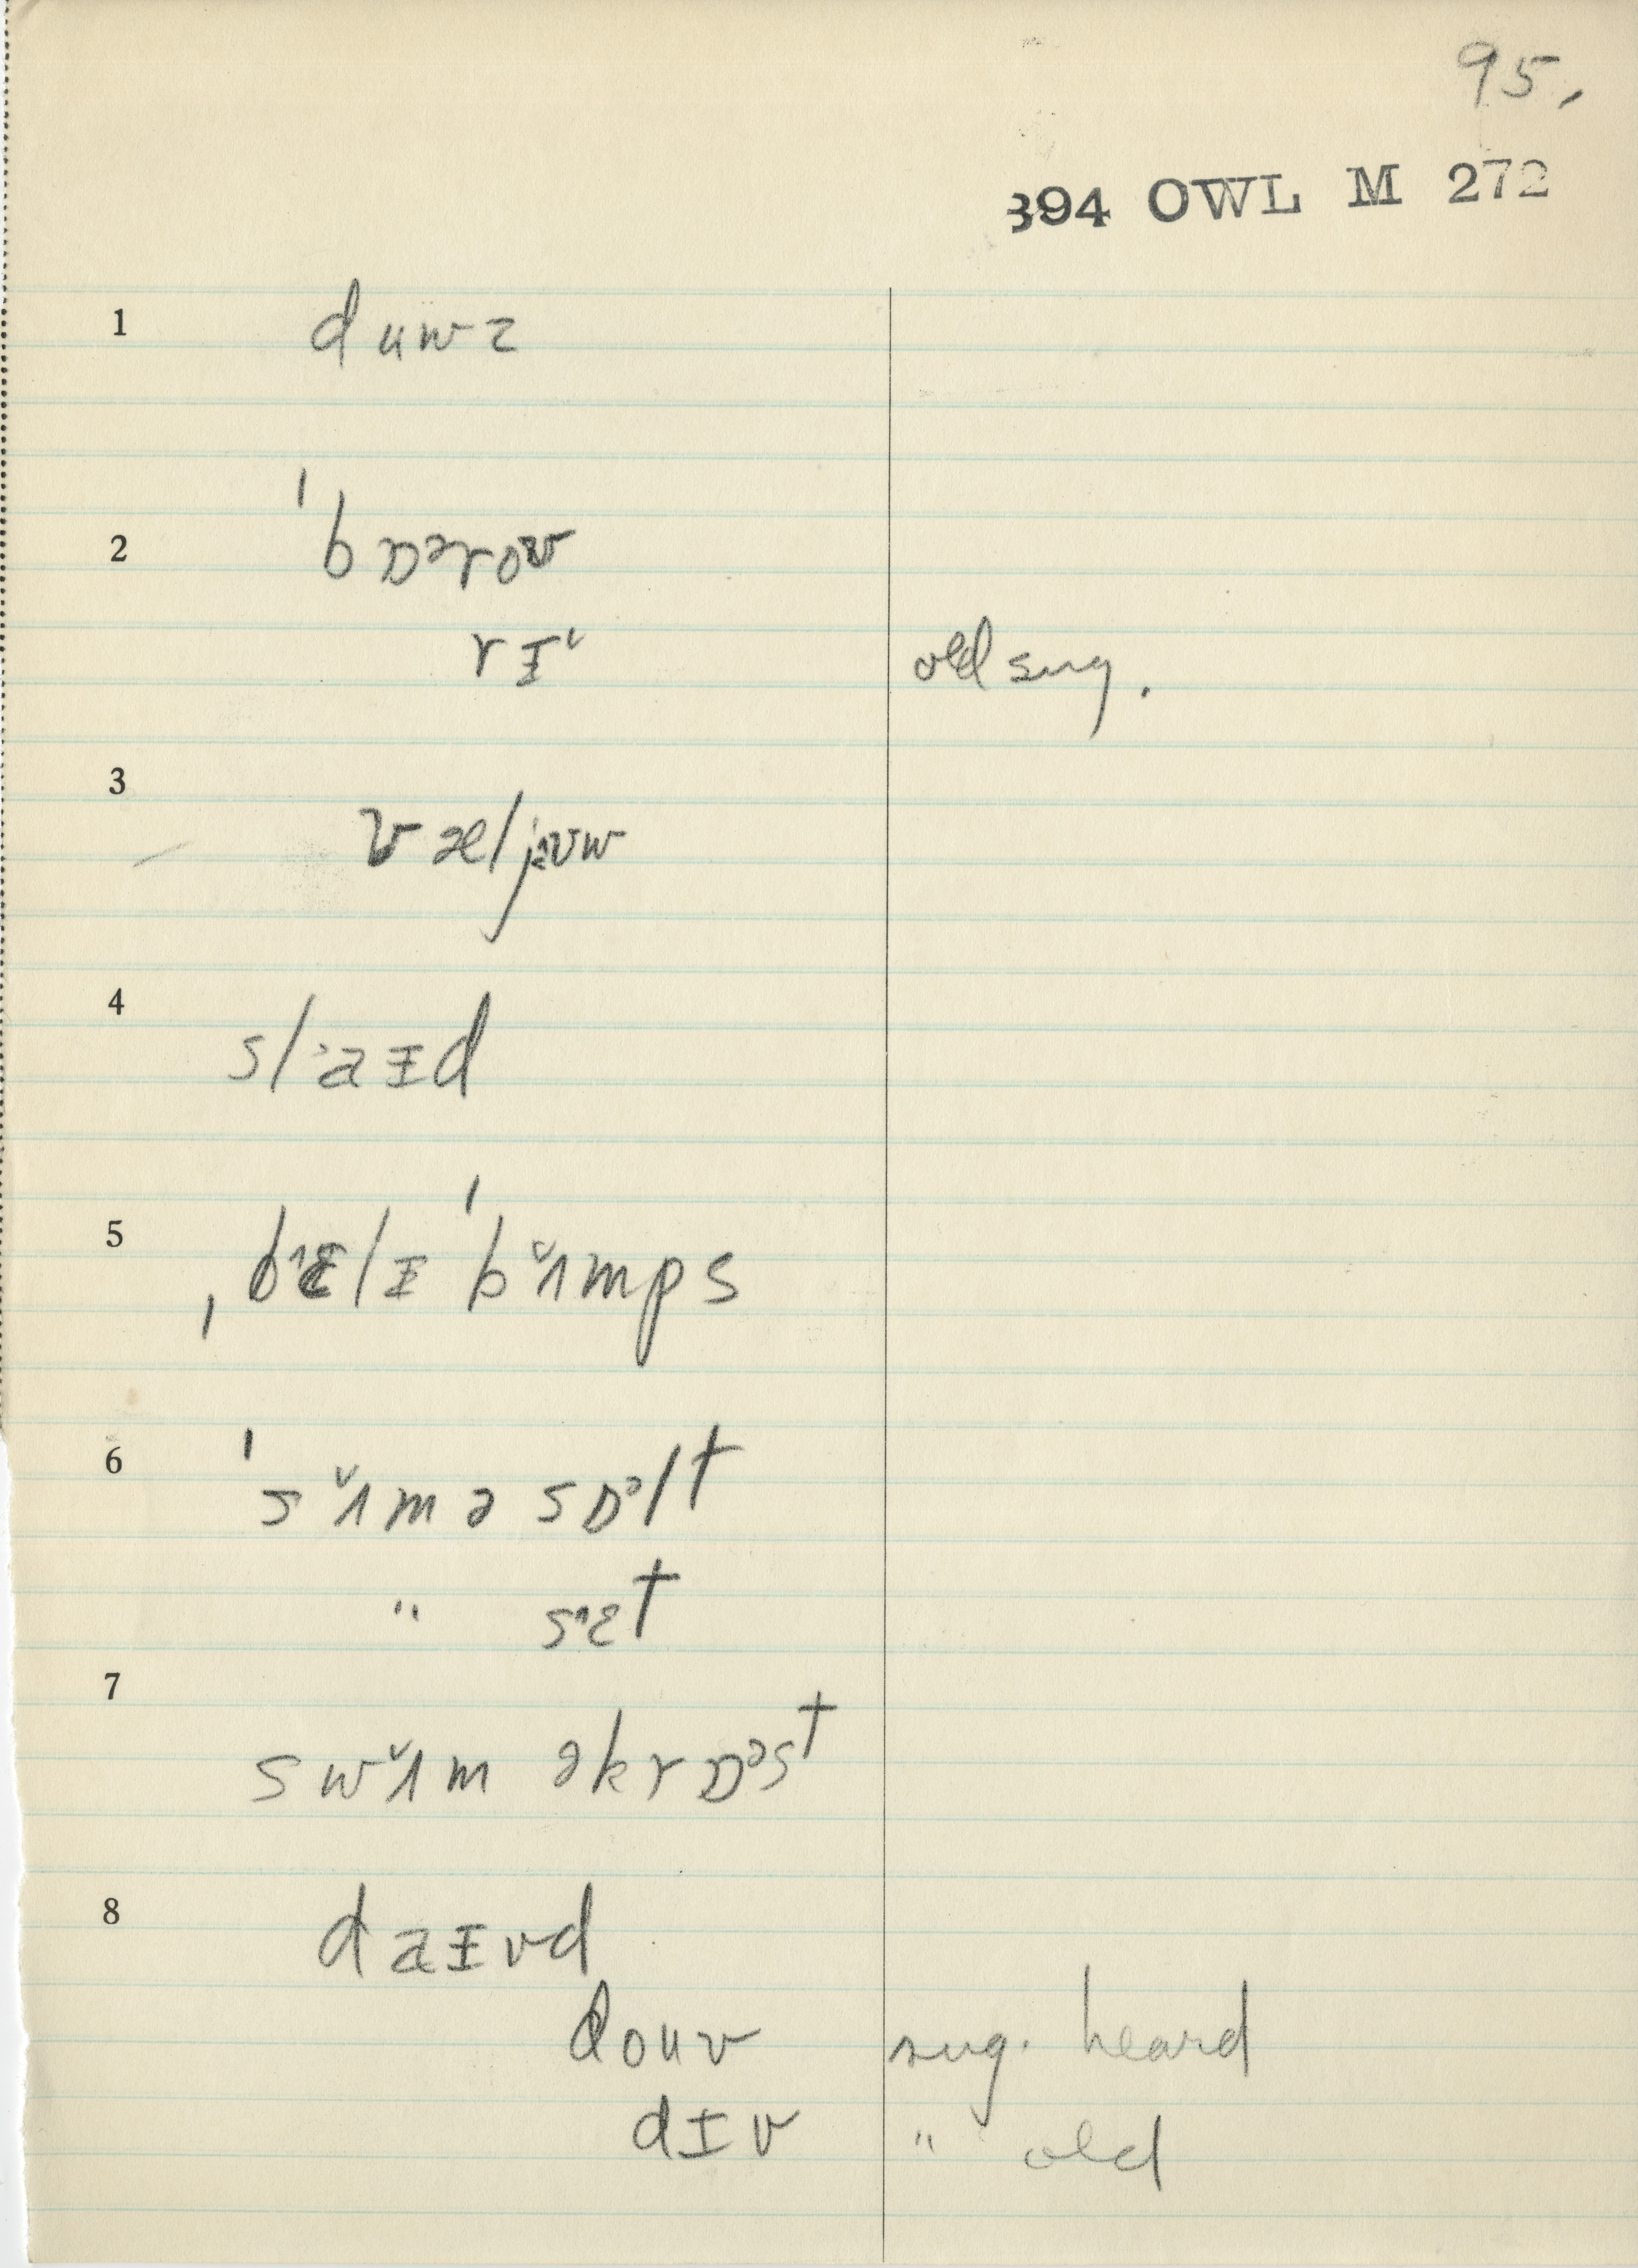 95.
394 OWL M 272
1 duwz
2 ˈbɒᵊroʊ
rɪˇ old sug.
3 væljəw
4 sl˃aɪd
5 ˌbɛ˄lɪ ˈbʌ̌mps
6 ˈsʌ̌məsɒᵊlt
" sɛ˄t
7 swʌ̌m əkrɒᵊst
8 daɪvd
douv sug. heard
dɪv " old